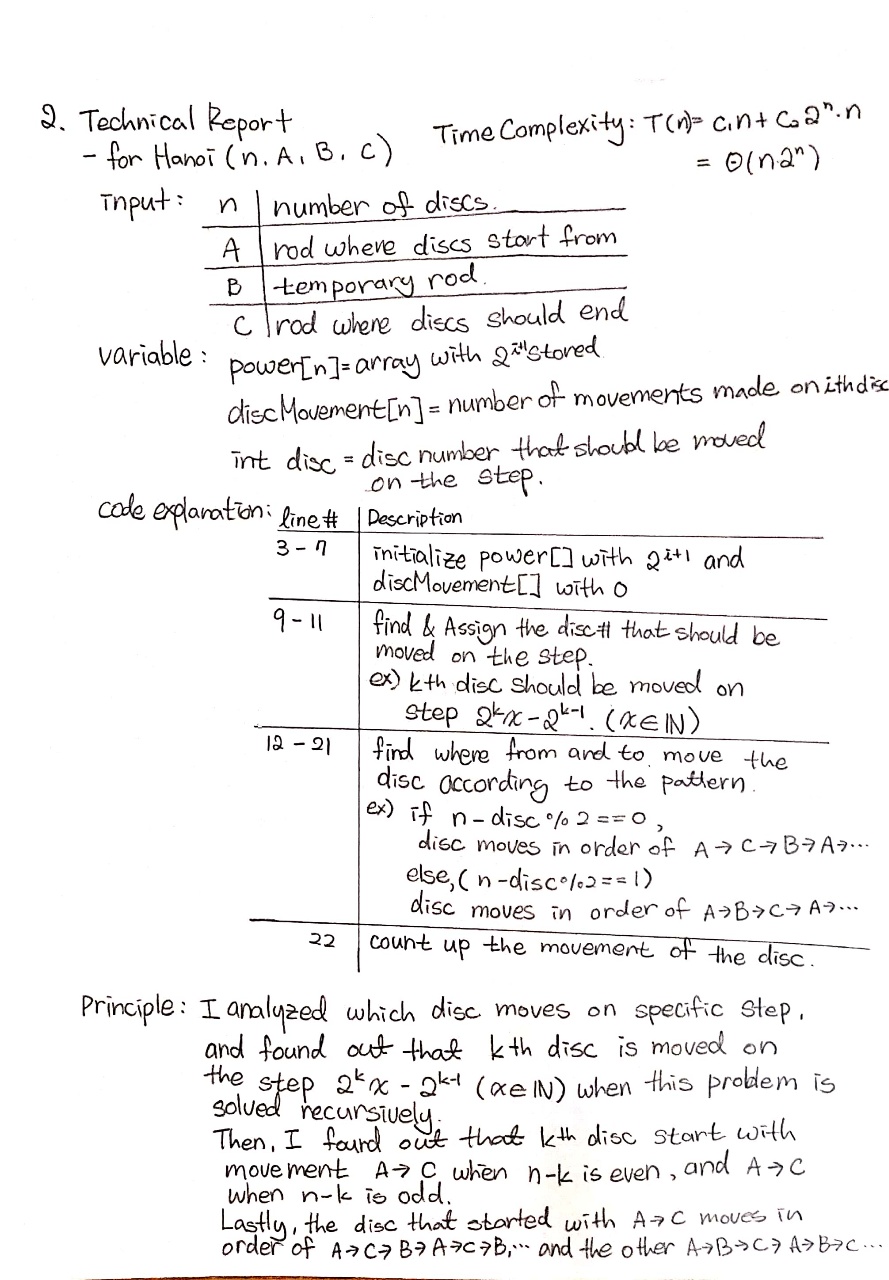 2. Technical Report
- for Hanoi (n, A, B, C)
Time Complexity: T(n)= c₁n + c₂2ⁿ·n
= Θ(n·2ⁿ)
input: n | number of discs.
A | rod where discs start from
B | temporary rod.
C | rod where discs should end
variable: power[n] = array with 2ⁱ⁺¹ stored
discMovement[n] = number of movements made on ith disc
int disc = disc number that should be moved
on the step.
code explanation: line# | Description
3 - 7 | initialize power[] with 2ⁱ⁺¹ and
discMovement[] with 0
9 - 11 | find & Assign the disc# that should be
moved on the step.
ex) kth disc should be moved on
step 2ᵏx - 2ᵏ⁻¹. (x∈ℕ)
12 - 21 | find where from and to move the
disc according to the pattern.
ex) if n - disc % 2 == 0,
disc moves in order of A→C→B→A→...
else, (n - disc%2 == 1)
disc moves in order of A→B→C→A→...
22 | count up the movement of the disc.
Principle: I analyzed which disc moves on specific step,
and found out that kth disc is moved on
the step 2ᵏx - 2ᵏ⁻¹ (x∈ℕ) when this problem is
solved recursively.
Then, I found out that kth disc start with
movement A→C when n-k is even, and A→C
when n-k is odd.
Lastly, the disc that started with A→C moves in
order of A→C→B→A→C→B,... and the other A→B→C→A→B→C...